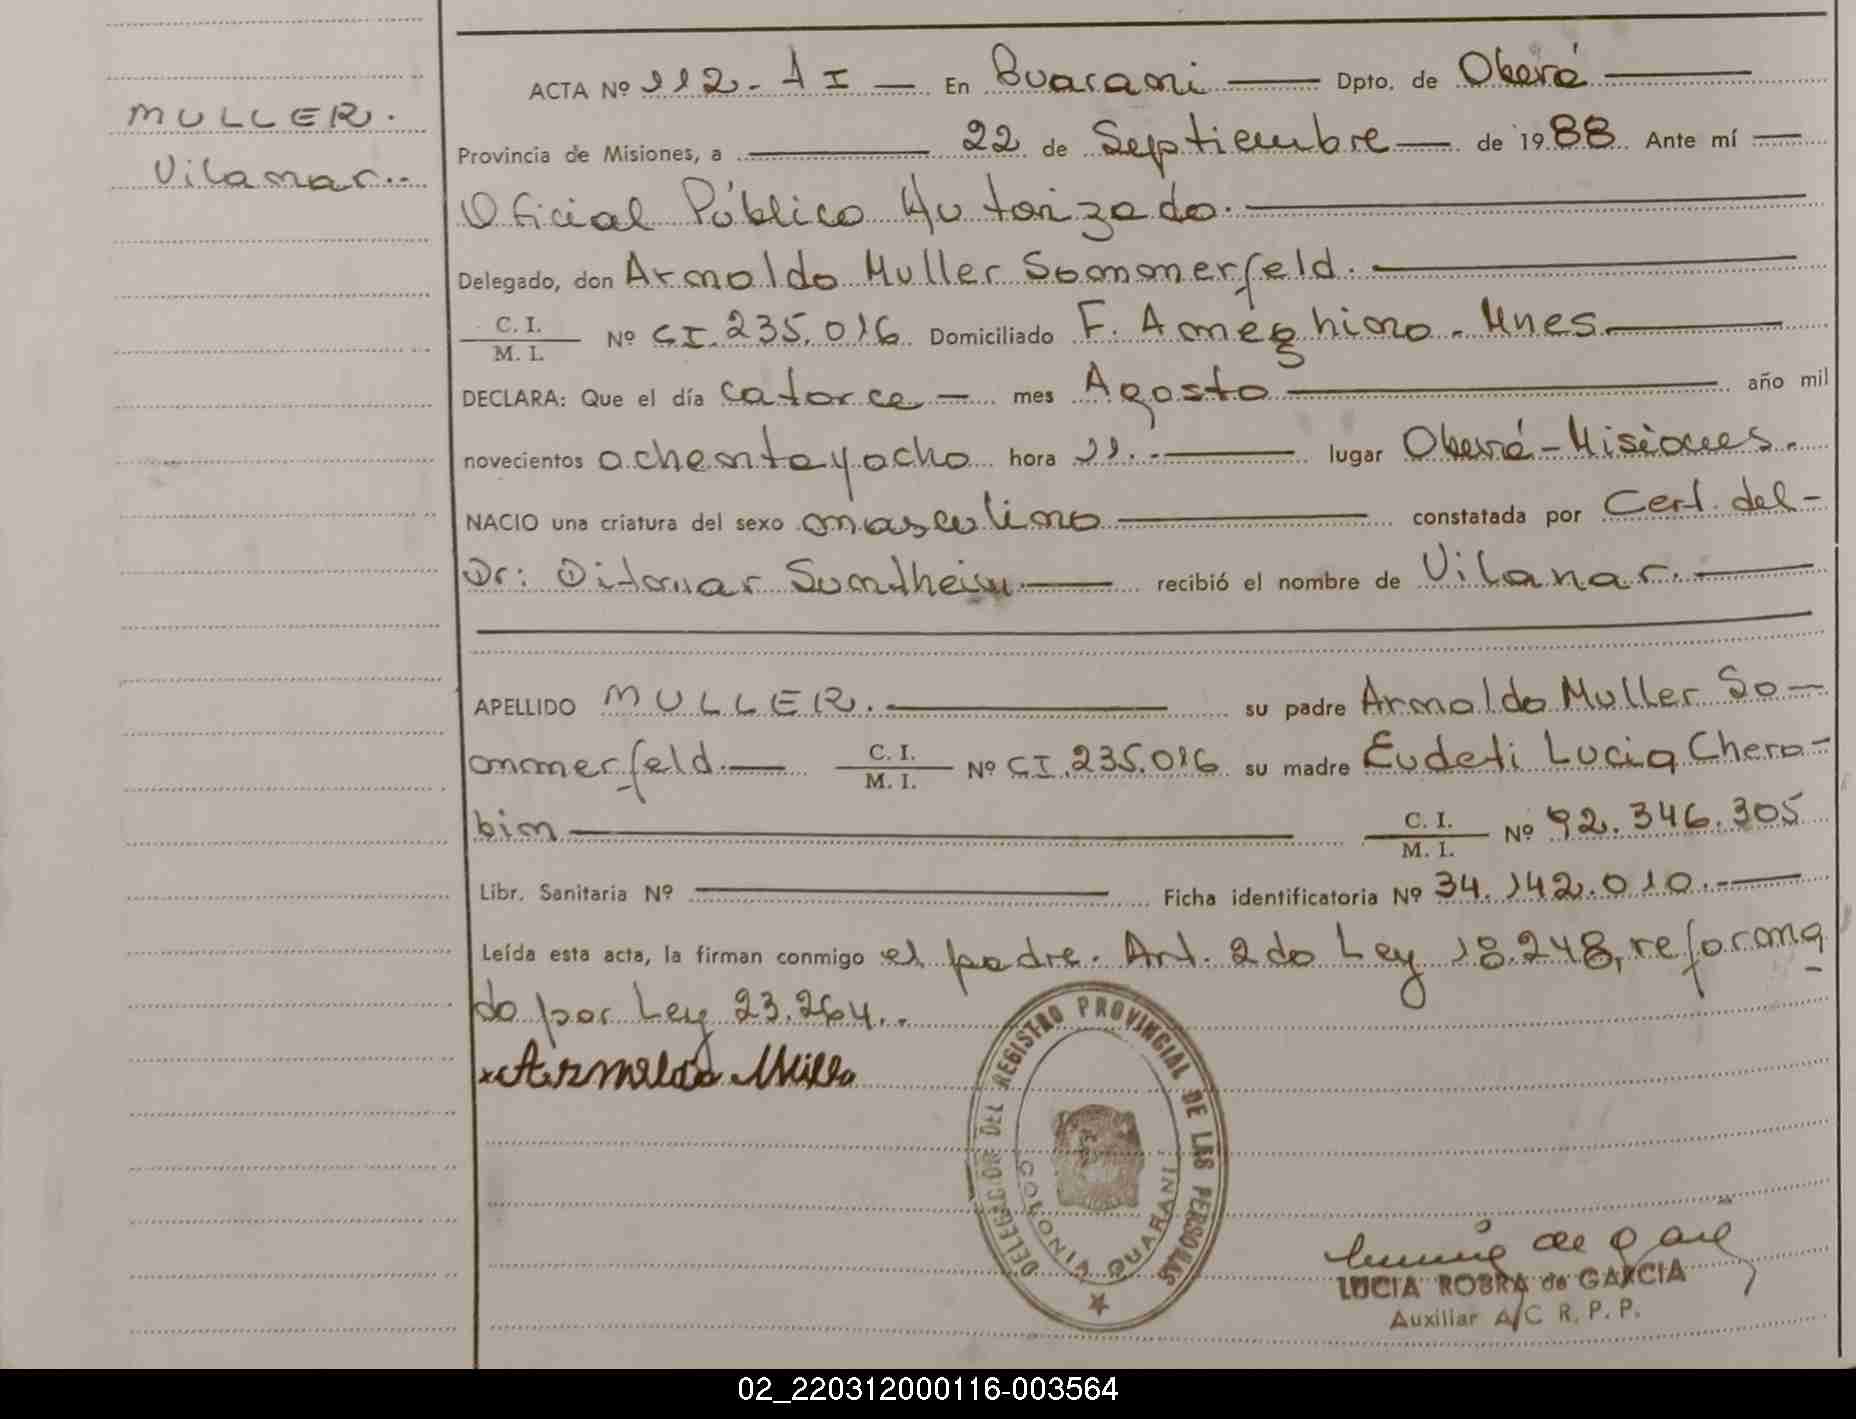 MULLER.
Vilamar..
ACTA Nº 112.-A I — En Guarani — Dpto. de Oberá —
Provincia de Misiones, a — 22 de Septiembre — de 1988. Ante mí —
Oficial Público Autorizado. —
Delegado, don Arnoldo Muller Sommerfeld. —
C. I.
M. I. Nº CI. 235.016 Domiciliado F. Ameghino.- Mnes. —
DECLARA: Que el día catorce — mes Agosto — año mil
novecientos ochentayocho hora 11.- — lugar Oberá - Misiones.-
NACIO una criatura del sexo masculino — constatada por Cert. del-
Dr: Ditmar Sundheim. — recibió el nombre de Vilamar. —
APELLIDO MULLER. — su padre Arnoldo Muller So-
mmerfeld. — C. I.
M. I. Nº CI. 235.016 su madre Eudeti Lucia Chero-
bim — C. I.
M. I. Nº 92.346.305
Libr. Sanitaria Nº — Ficha identificatoria Nº 34.142.010. —
Leída esta acta, la firman conmigo el padre. Art. 2do Ley 18.248, reforma
do por Ley 23.264..
x Arnoldo Muller
DELEGACION DEL REGISTRO PROVINCIAL DE LAS PERSONAS
COLONIA GUARANI
LUCIA ROBRA de GARCIA
Auxiliar A/C R. P. P.
02_220312000116-003564